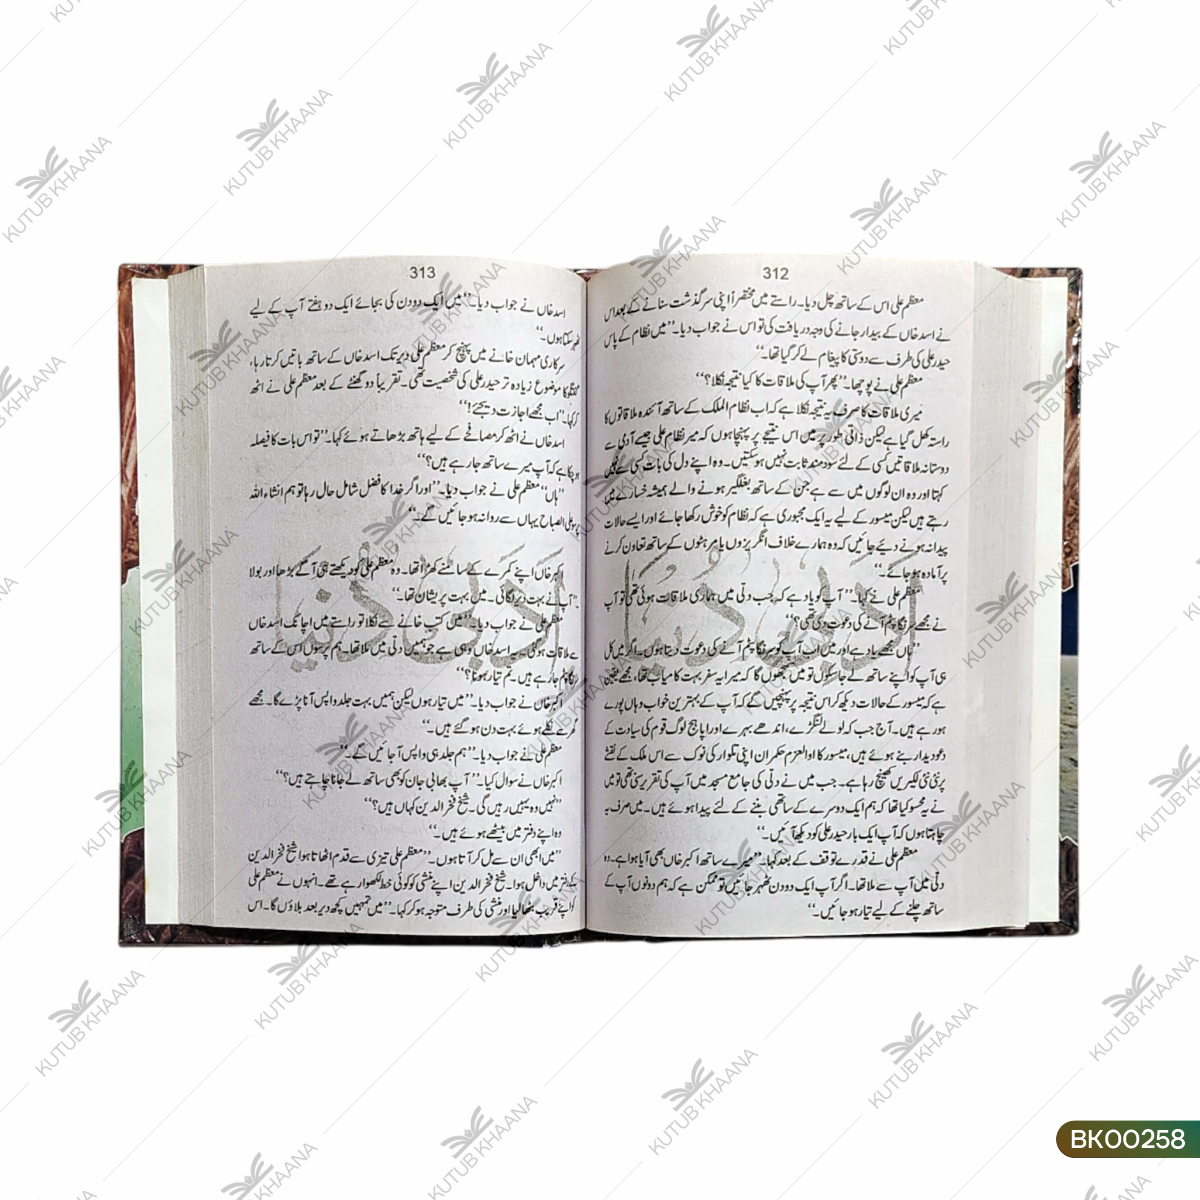 312
معظم علی اس کے ساتھ چل دیا۔ راستے میں مختصراً اپنی سرگذشت سنانے کے بعد اس
نے اسد خاں کے بیدار جانے کی وجہ دریافت کی تو اس نے جواب دیا۔ ”میں نظام کے پاس
حیدر علی کی طرف سے دوستی کا پیغام لے کر گیا تھا۔“
معظم علی نے پوچھا۔ ”پھر آپ کی ملاقات کا کیا نتیجہ نکلا؟“
میری ملاقات کا صرف یہ نتیجہ نکلا ہے کہ اب نظام الملک کے ساتھ آئندہ ملاقاتوں کا
راستہ کھل گیا ہے لیکن ذاتی طور پر میں اس نتیجے پر پہنچا ہوں کہ میر نظام علی جیسے آدمی سے
دوستانہ ملاقاتیں کسی کے لئے سود مند ثابت نہیں ہو سکتیں۔ وہ اپنے دل کی بات کسی سے نہیں
کہتا اور وہ ان لوگوں میں سے ہے جن کے ساتھ بغلگیر ہونے والے ہمیشہ خسارے میں
رہتے ہیں لیکن میسور کے لیے یہ ایک مجبوری ہے کہ نظام کو خوش رکھا جائے اور ایسے حالات
پیدا نہ ہونے دیئے جائیں کہ وہ ہمارے خلاف انگریزوں یا مرہٹوں کے ساتھ تعاون کرنے
پر آمادہ ہو جائے۔“
معظم علی نے کہا۔ ”آپ کو یاد ہے کہ جب دلی میں ہماری ملاقات ہوئی تھی تو آپ
نے مجھے سرنگا پٹم آنے کی دعوت دی تھی؟“
”ہاں مجھے یاد ہے اور میں اب آپ کو سرنگا پٹم آنے کی دعوت دیتا ہوں۔ اگر میں کل
ہی آپ کو اپنے ساتھ لے جا سکوں تو میں سمجھوں گا کہ میرا یہ سفر بہت کامیاب تھا۔ مجھے یقین
ہے کہ میسور کے حالات دیکھ کر اس نتیجہ پر پہنچیں گے کہ آپ کے بہترین خواب وہاں پورے
ہو رہے ہیں۔ آج جب کہ لولے لنگڑے، اندھے بہرے اور اپاہج لوگ قوم کی سیادت کے
دعویدار بنے ہوئے ہیں، میسور کا اولوالعزم حکمران اپنی تلوار کی نوک سے اس ملک کے نقشے
پر نئی نئی لکیریں کھینچ رہا ہے۔ جب میں نے دلی کی جامع مسجد میں آپ کی تقریر سنی تھی تو میں
نے یہ محسوس کیا تھا کہ ہم ایک دوسرے کے ساتھی بننے کے لئے پیدا ہوئے ہیں۔ میں صرف یہ
چاہتا ہوں کہ آپ ایک بار حیدر علی کو دیکھ آئیں۔“
معظم علی نے قدرے توقف کے بعد کہا۔ ”میرے ساتھ اکبر خاں بھی آیا ہوا ہے۔ وہ
دلی میں آپ سے ملا تھا۔ اگر آپ ایک دو دن ٹھہر جائیں تو ممکن ہے کہ ہم دونوں آپ کے
ساتھ چلنے کے لیے تیار ہو جائیں۔“
ادبی دنیا
313
اسد خاں نے جواب دیا۔ ”میں ایک دو دن کی بجائے ایک دو ہفتے آپ کے لیے
ٹھہر سکتا ہوں۔“
سرکاری مہمان خانے میں پہنچ کر معظم علی دیر تک اسد خاں کے ساتھ باتیں کرتا رہا،
گفتگو کا موضوع زیادہ تر حیدر علی کی شخصیت تھی۔ تقریباً دو گھنٹے کے بعد معظم علی نے اٹھ
کر کہا۔ ”اب مجھے اجازت دیجئے!“
اسد خاں نے اٹھ کر مصافحے کے لیے ہاتھ بڑھاتے ہوئے کہا۔ ”تو اس بات کا فیصلہ
ہو چکا ہے کہ آپ میرے ساتھ جا رہے ہیں؟“
”ہاں“ معظم علی نے جواب دیا۔ ”اور اگر خدا کا فضل شامل حال رہا تو ہم انشاء اللہ
علی الصباح یہاں سے روانہ ہو جائیں گے۔“
اکبر خاں اپنے کمرے کے سامنے کھڑا تھا۔ وہ معظم علی کو دیکھتے ہی آگے بڑھا اور بولا
۔ ”آپ نے بہت دیر لگائی۔ میں بہت پریشان تھا۔“
معظم علی نے جواب دیا۔ ”میں کتب خانے سے نکلا تو راستے میں اچانک اسد خاں
سے ملاقات ہو گئی۔ یہ اسد خاں وہی ہے جو ہمیں دلی میں ملا تھا۔ ہم پرسوں اس کے ساتھ
سرنگا پٹم جا رہے ہیں۔ تم تیار ہونا؟“
اکبر خاں نے جواب دیا۔ ”میں تیار ہوں لیکن ہمیں بہت جلد واپس آنا پڑے گا۔ مجھے
گھر سے نکلے ہوئے بہت دن ہو گئے ہیں۔“
معظم علی نے جواب دیا۔ ”ہم جلد ہی واپس آ جائیں گے۔“
اکبر خاں نے سوال کیا۔ ”آپ بھابی جان کو بھی ساتھ لے جانا چاہتے ہیں؟“
”نہیں وہ یہیں رہیں گی۔ شیخ فخر الدین کہاں ہیں؟“
وہ اپنے دفتر میں بیٹھے ہوئے ہیں۔“
”میں ابھی ان سے مل کر آتا ہوں۔“ معظم علی تیزی سے قدم اٹھاتا ہوا شیخ فخر الدین
کے دفتر میں داخل ہوا۔ شیخ فخر الدین اپنے منشی کو کوئی خط لکھوا رہے تھے۔ انہوں نے معظم علی
کو اپنے قریب بٹھا لیا اور منشی کی طرف متوجہ ہو کر کہا۔ ”میں تمہیں کچھ دیر بعد بلاؤں گا۔ اس
ادبی دنیا
KUTUB KHAANA
BK00258